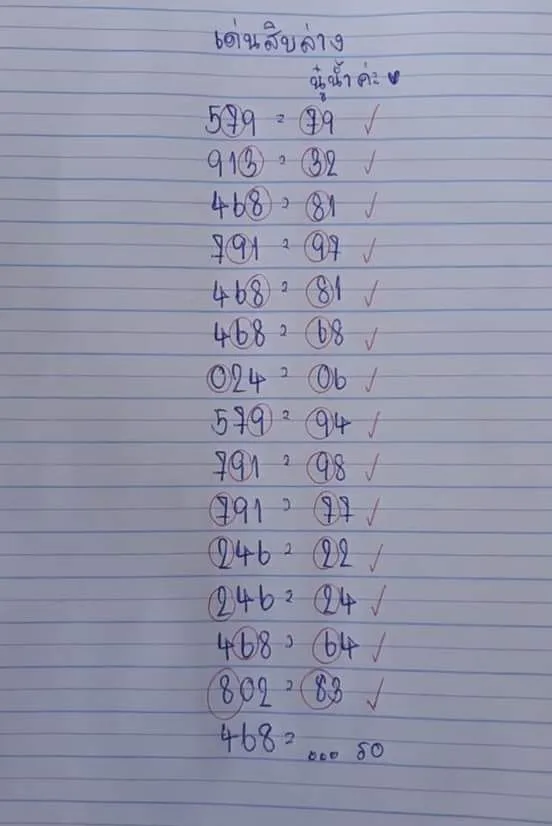 เด่นสิบล่าง
นู๋น้ำค่ะ
579 = 79 ✓
913 = 32 ✓
468 = 81 ✓
791 = 97 ✓
468 = 81 ✓
468 = 68 ✓
024 = 06 ✓
579 = 94 ✓
791 = 98 ✓
791 = 77 ✓
246 = 22 ✓
246 = 24 ✓
468 = 64 ✓
802 = 83 ✓
468 = ... รอ